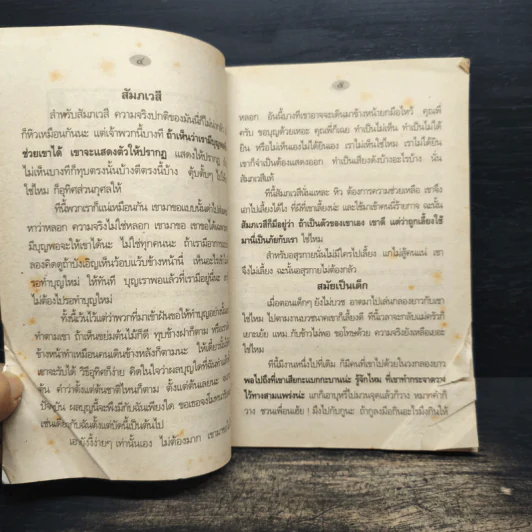 ๔
สัมภเวสี
สำหรับสัมภเวสี ความจริงปกติของมันนี่ก็ไม่
ก็หิวเหมือนกันนะ แต่เจ้าพวกนี้บางที ถ้าเห็นว่าเรามีบุญพอ
ช่วยเขาได้ เขาจะแสดงตัวให้ปรากฏ แสดงให้ปรากฏ
ไม่เห็นบางทีก็ทุบตรงนั้นบ้างตีตรงนี้บ้าง ตุ้บตั้บๆ
ใช่ไหม ก็อุทิศส่วนกุศลให้
ทีนี้พวกเราก็แน่เหมือนกัน เขามาขอแบบนั้นคำไป
หาว่าหลอก ความจริงไม่ใช่หลอก เขามาขอ เขาขอได้
มีบุญพอจะให้เขาได้นะ ไม่ใช่ทุกคนนะ ถ้าเรามีอาการ
ลองคิดดูถ้าบังเอิญเห็นว้อบแว้บข้างหน้านี่ เห็นอะไร
รอทำบุญใหม่ ให้ทันที บุญเราพอแล้วที่เรามีอยู่นี่นะ
ไม่ต้องไปรอทำบุญใหม่
ทั้งนี้เว้นไว้แต่ว่าพวกที่มาเข้าฝันขอให้ทำบุญอย่างนั้น
ทำตามเขา ถ้าเห็นขย่มต้นไม้ก็ดี ทุบข้างฝาก็ตาม หรือ
ข้างหน้าทำเหมือนคนเดินข้างหลังก็ตามนะ ให้เดี๋ยวนั้น
เขาจะรับได้ วิธีอุทิศก็ง่าย คิดในใจว่าผลบุญใดที่ฉันทำ
ต้น คำว่าตั้งแต่ต้นชาติไหนก็ตาม ตั้งแต่ต้นเลยนะ
ปัจจุบัน ผลบุญนี้จะพึงมีกับฉันเพียงใด ขอเธอจงโมทนา
เช่นเดียวกับฉันตั้งแต่บัดนี้เป็นต้นไป
เอายังงี้ง่ายๆ เท่านั้นเอง ไม่ต้องมาก เขามา
๕
หลอก อันนี้บางทีเขาอาจจะเดินมาข้างหน้ายกมือไหว้ คุณพี่
ครับ ขอบุญด้วยเหอะ คุณพี่ก็เฉย ทำเป็นไม่เห็น ทำเป็นไม่ได้
ยิน หรือไม่เห็นเองไม่ได้ยินเอง เราไม่เห็นใช่ไหม เราไม่ได้ยิน
เขาก็จำเป็นต้องแสดงออก ทำเป็นเสียงดังบ้างอะไรบ้าง นั่น
สัมภเวสีแท้
ทีนี้สัมภเวสีนั่นแหละ หิว ต้องการความช่วยเหลือ เขาจึง
เอาไปเลี้ยงได้ไง ที่มีที่เขาเลี้ยงน่ะ และใช้มาเข้าคนนี่ร้ายกาจ ฉะนั้น
สัมภเวสีก็มีอยู่ว่า ถ้าเป็นตัวของเขาเอง เขาดี แต่ว่าถูกเลี้ยงใช้
มานี่เป็นภัยกับเรา ใช่ไหม
สำหรับอสุรกายนั่นไม่มีใครไปเลี้ยง แกไม่สู้คนแน่ เขา
จึงไม่เลี้ยง ฉะนั้นอสุรกายไม่ต้องกลัว
สมัยเป็นเด็ก
เมื่อตอนเด็กๆ ยังไม่บวช อาตมาไปเล่นกลองยาวกับเขา
ใช่ไหม ไปตามงานบวชนาคเขาก็เลี้ยงดี ทีนี้เวลาจะกลับแม่ครัวก็
เยาะเย้ย แหม..กับข้าวไม่พอ ขอโทษด้วย ความจริงยังเหลือเยอะ
ใช่ไหม
ทีนี้มีงานหนึ่งไปที่เดิม ก็มีคนที่เขาไปด้วยในวงกลองยาว
พอไปถึงที่เขาเสียกะแบกกะบาลน่ะ รู้จักไหม ที่เขาทำกระจาดวาง
ไว้ทางสามแพร่งน่ะ แกก็เอาบุหรี่ไปมวนจุดแล้วก็วาง หมากคำก็
วาง ชวนเพื่อนเอ้ย ! มึงไปกับกูนะ ถ้ากูลงมือกินอะไรมึงกินให้